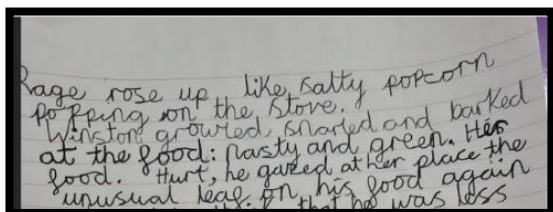 Rage rose up like salty popcorn
popping on the stove.
Winston growled, snarled and barked
at the food: nasty and green. Her
food. Hurt, he gazed at her place the
unusual leaf on his food again
that he was less